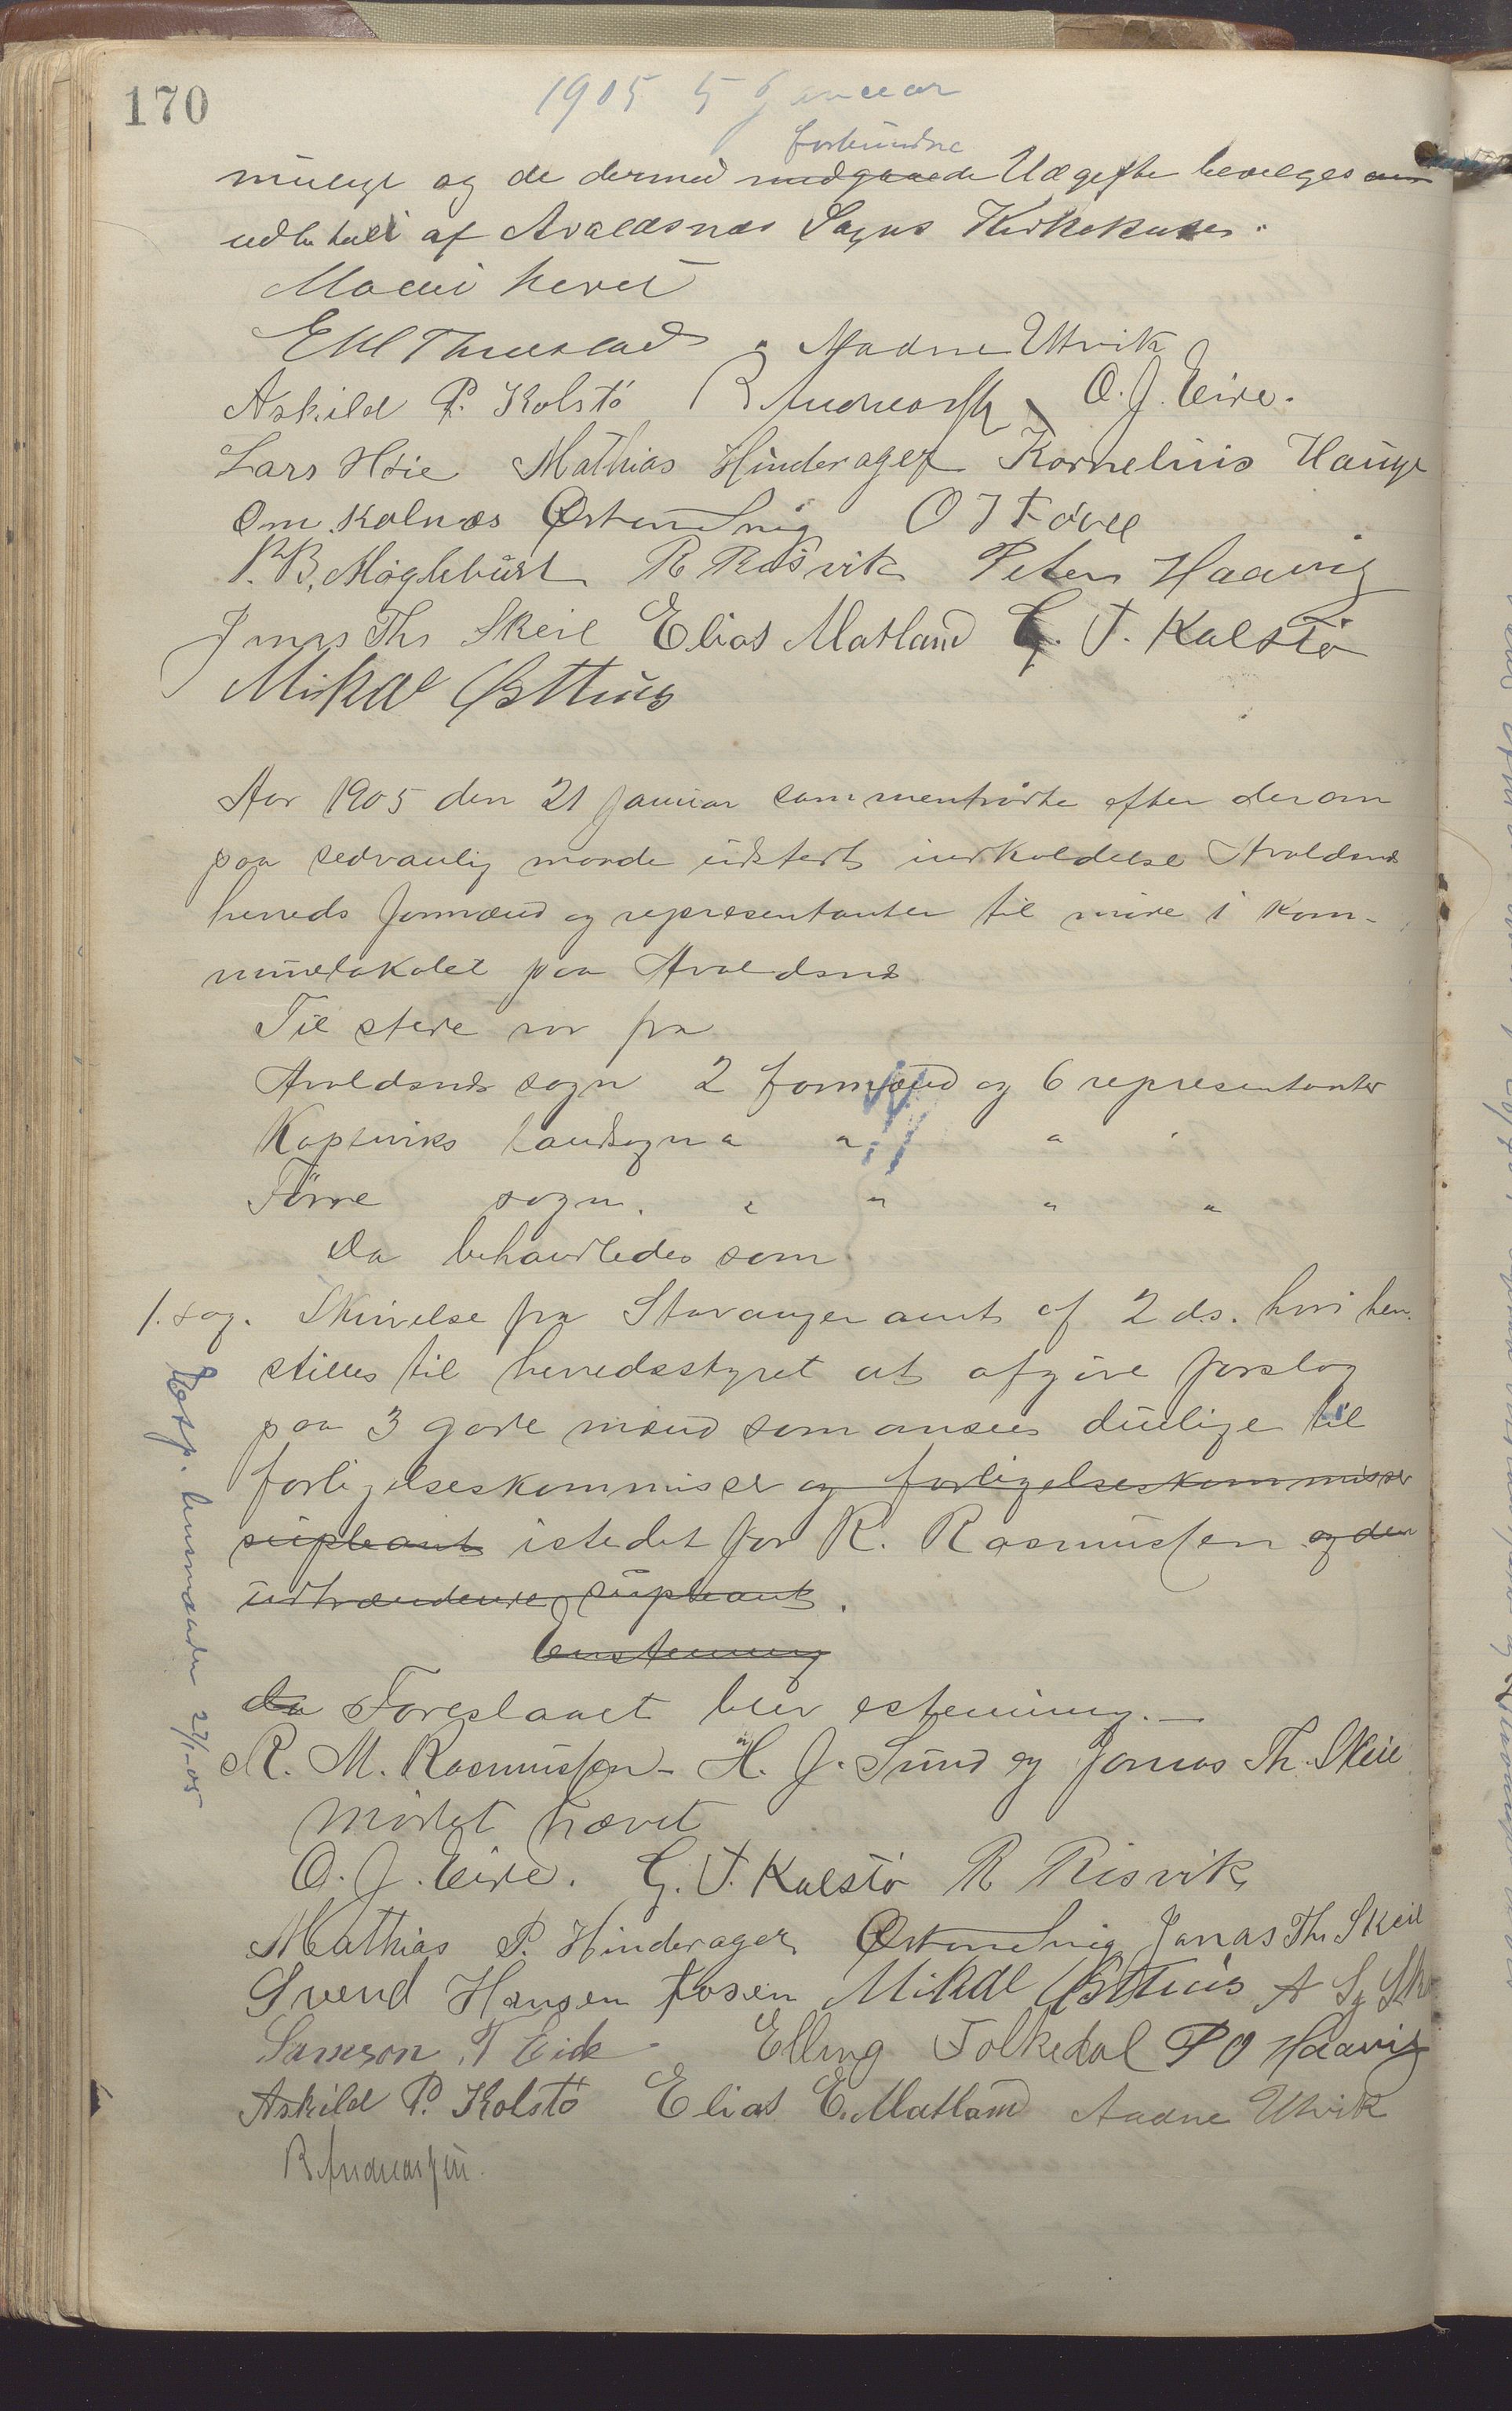 170
1905 5 Januar
forbundne
muligt og de dermed medgaaede Udgifter bevilges
udbetalt af Avaldsnes Sogns Kirkekasse.
Mødet hevet
Aadne Utvik
Askild P. Kolstö B Andreassen O. J. Eide.
Lars Höie Mathias Hinderager Kornelius Hauge
Om. Kolnæs O J Førre
P. B. Møghbust R Risvik Peter Haavig
Jonas Ths Skeie Elias Matland G. T. Kalstø
Mikal Østhus
Aar 1905 den 21 Januar sammentraadte efter derom
paa sedvanlig maade udstedt indkaldelse Avaldsnes
herreds formænd og representanter til møde i kom-
munelokalet paa Avaldsnes
Til stede var fra
Avaldsnes sogn 2 formænd og 6 representanter
Koperviks landsogn " " " "
Førre sogn. " " " "
Da behandledes som
1. sag. Skrivelse fra Stavanger amt af 2 ds. hvori hen-
stilles til herredsstyret at afgive forslag
paa 3 gode mænd som ansees duelige til
forligelseskommissær og forligelseskommissær
supleant istedet for R. Rasmussen og den
udtrædende supleant.
Enstemmig
da Foreslaaet blev estemmig. —
R. M. Rasmussen - H. J. Sund og Jonas Th. Skeie
mødet hævet
O. J. Eide. G. T. Kalstø R Risvik
Mathias P. Hinderager Jonas Ths Skeie
Svend Hansen Fosen Mikal Østhus A S
Samson T Eide Elling Folkedal P O Haavig
Askild P. Kolstö Elias E. Matland Aadne Utvik
B Andreassen.
Exp. lensmanden 27/1-05